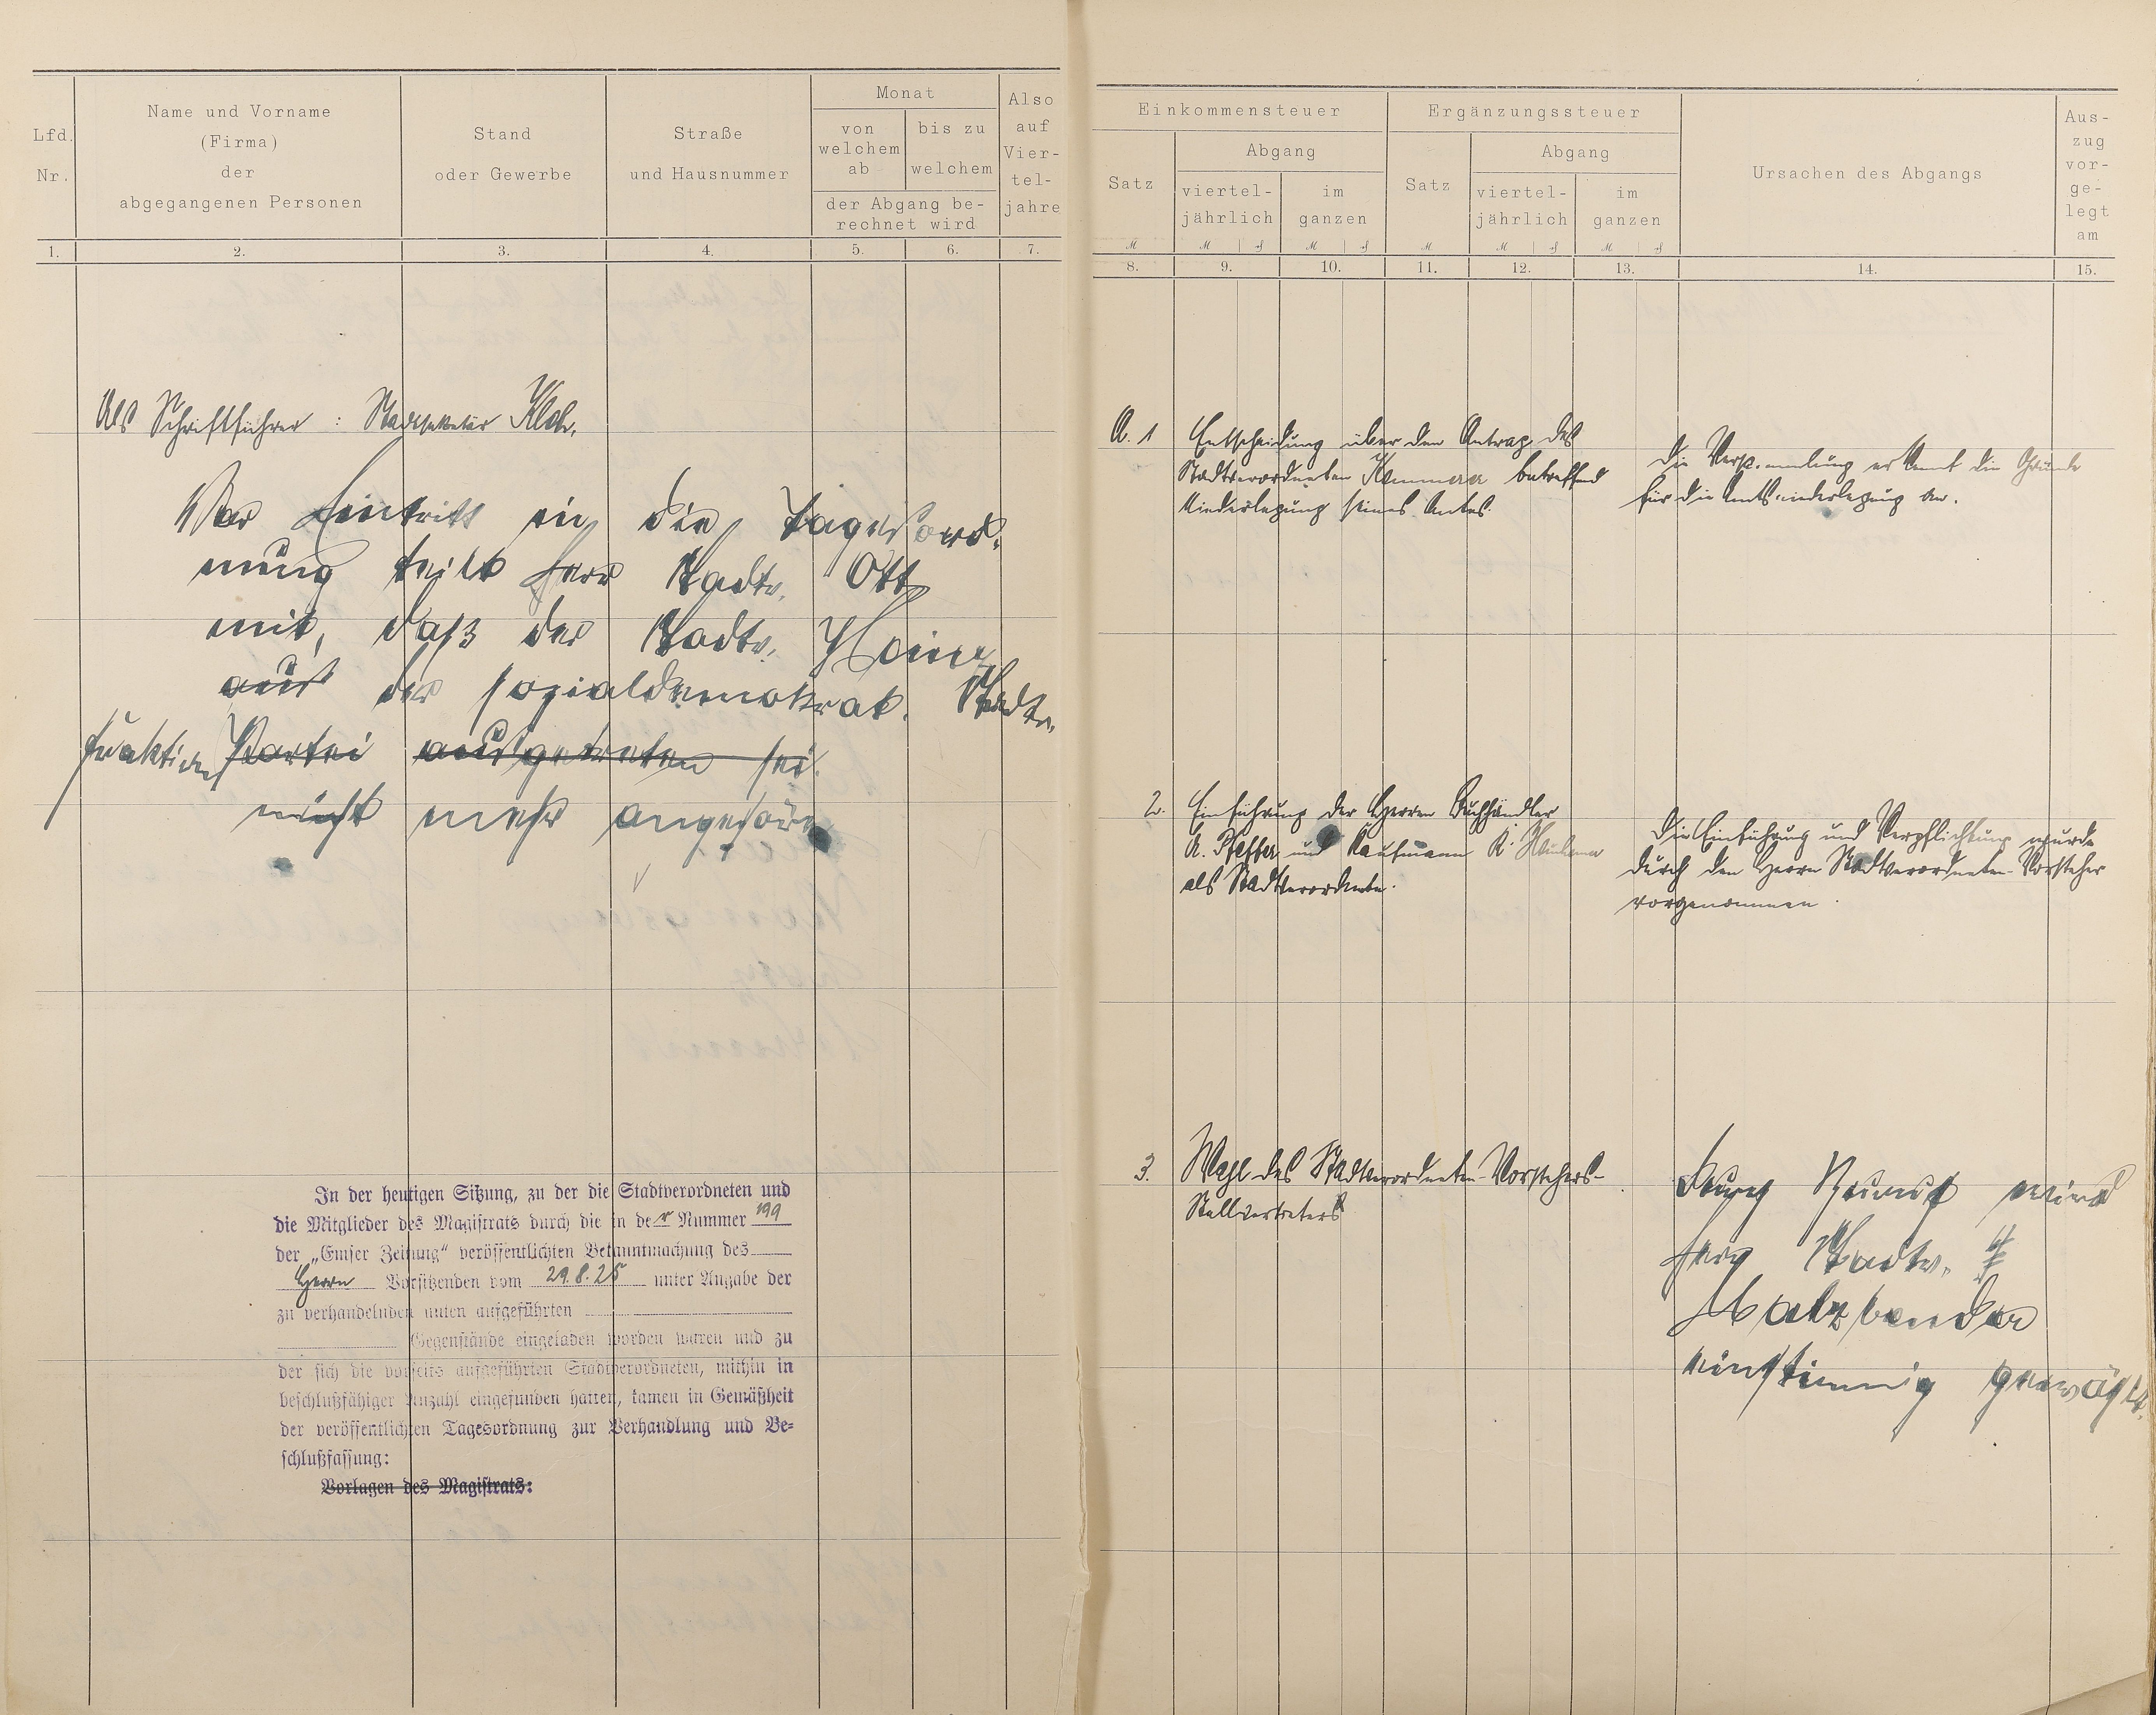 Lfd. Nr.
Name und Vorname
(Firma)
der
abgegangenen Personen
Stand
oder Gewerbe
Straße
und Hausnummer
Monat
von welchem ab
bis zu welchem
der Abgang be-
rechnet wird
Also auf Vier- tel- jahre
1. 2. 3. 4. 5. 6. 7.
Als Schriftführer : Stadtsekretär
Vor Eintritt in die Tagesord-
nung teilt Herr Stadtv. Ott
mit, daß der Stadtv. Heinz
aus der sozialdemokrat. Stadtv.
fraktion Partei ausgetreten sei.
nicht mehr angehöre
In der heutigen Sitzung, zu der die Stadtverordneten und
die Mitglieder des Magistrats durch die in der Nummer 199
der „Emser Zeitung“ veröffentlichten Bekanntmachung des
Herrn Vorsitzenden vom 29.8.25 unter Angabe der
zu verhandelnden unten aufgeführten
Gegenstände eingeladen worden waren und zu
der sich die vorseits aufgeführten Stadtverordneten, mithin in
beschlußfähiger Anzahl eingefunden hatten, kamen in Gemäßheit
der veröffentlichten Tagesordnung zur Verhandlung und Be-
schlußfassung:
Vorlagen des Magistrats:
Einkommensteuer
Ergänzungssteuer
Satz
Abgang
viertel-
jährlich
im
ganzen
Satz
Abgang
viertel-
jährlich
im
ganzen
Ursachen des Abgangs
Aus-
zug
vor-
ge-
legt
am
M M ₰ M ₰ M M ₰ M ₰
8. 9. 10. 11. 12. 13. 14. 15.
A. 1 Entscheidung über den Antrag des
Stadtverordneten betreffend
Niederlegung seines Amtes.
Die Versammlung erkennt die Gründe
für die Amtsniederlegung an.
2. Einführung der Herren Buchhändler
A. Pfeffer und Kaufmann K.
als Stadtverordnete.
Die Einführung und Verpflichtung wurde
durch den Herrn Stadtverordneten-Vorsteher
vorgenommen.
3. Wahl des Stadtverordneten-Vorstehers-
Stellvertreters
Durch Zuruf wird
Herr Stadtv.
Malzbender
einstimmig gewählt.